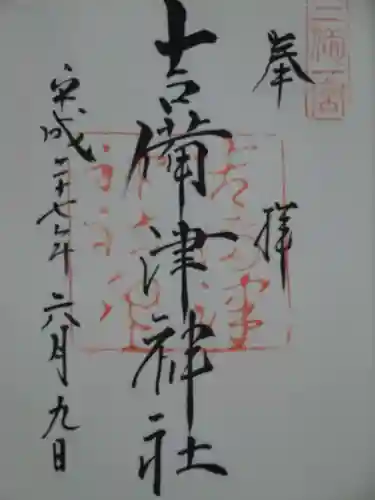 奉拝
三備一宮
吉備津神社
平成二十七年六月九日